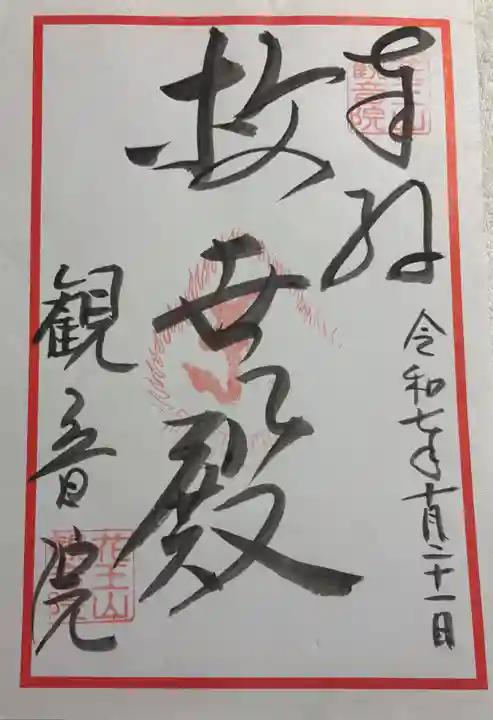 奉拝
令和七年十月二十一日
救世殿
観音院
花王山
観音院
花王山
観音院